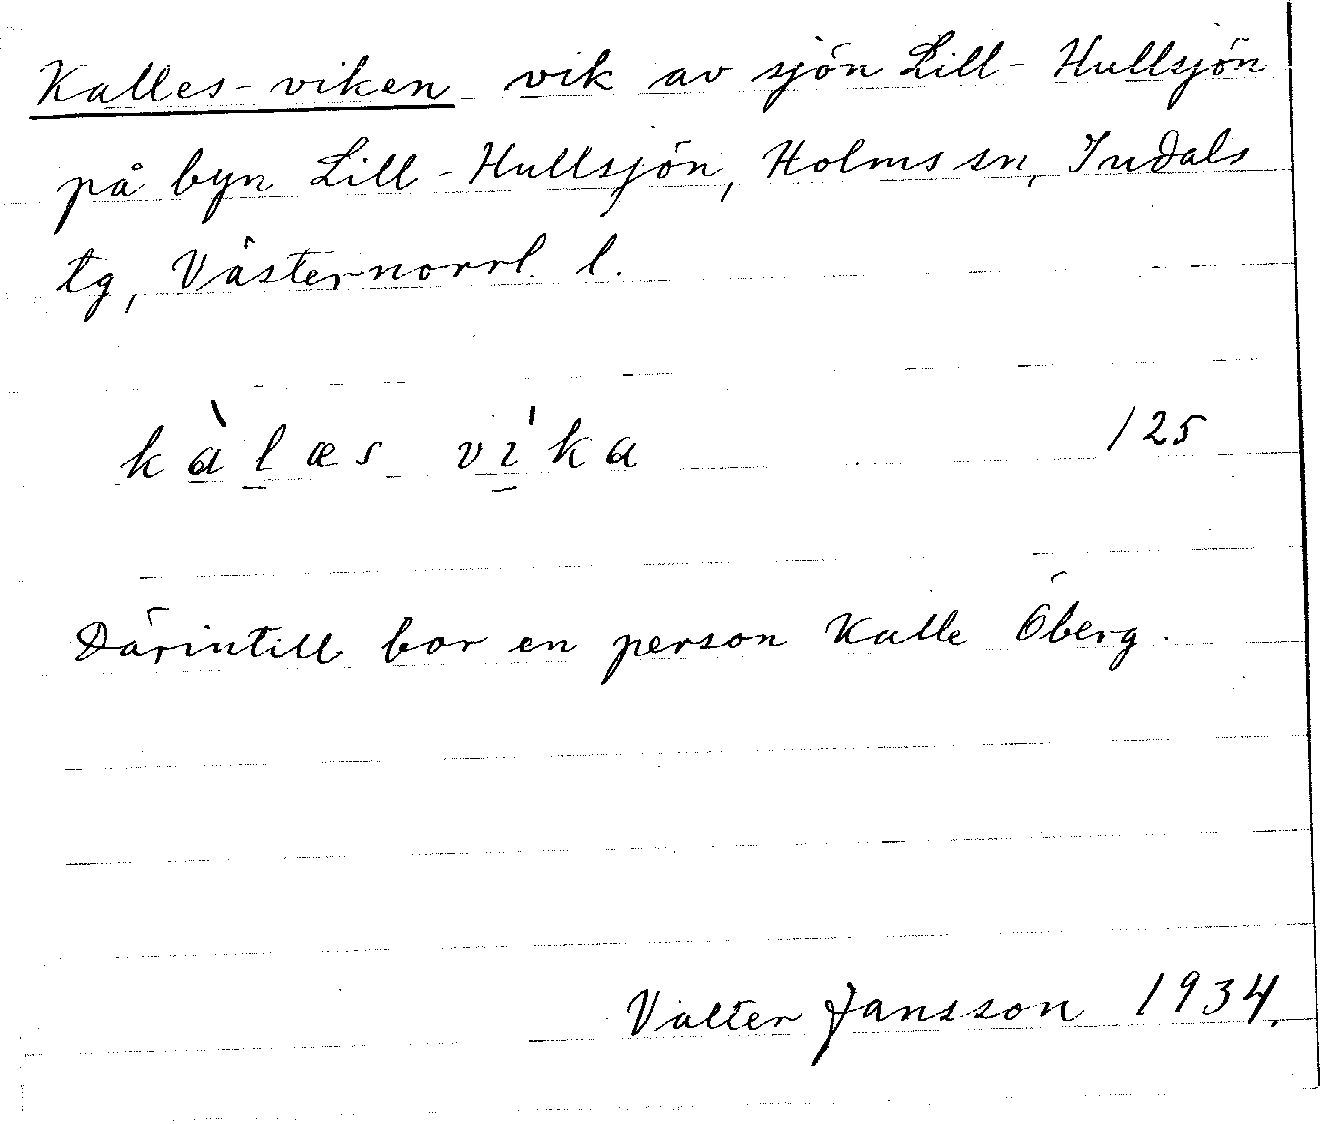 Kalles-viken vik av sjön Lill-Hullsjön
på byn Lill-Hullsjön, Holms sn, Indals
tg, Västernorrl. l.
kàl̠æs vi̠ka 125
Därintill bor en person Kalle Öberg.
Valter Jansson 1934.